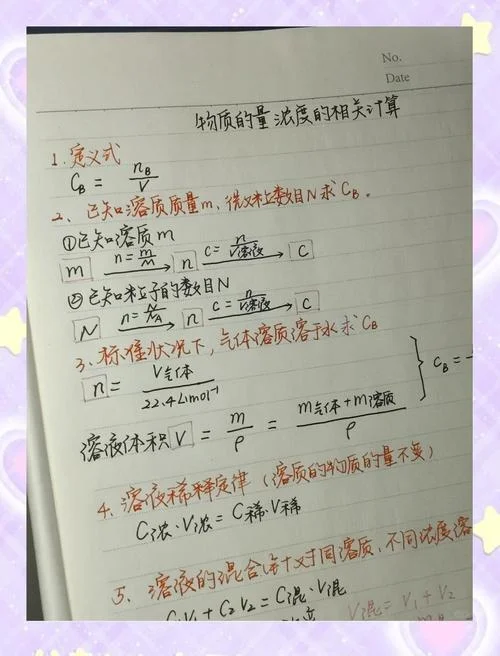 No.
Date
物质的量浓度的相关计算
1.定义式
C_B = n_B/V
2、已知溶质质量m,微粒数目N求C_B。
①已知溶质m
m n=m/M→ n c=n/V溶液→ c
②已知粒子的数目N
N n=N/N_A→ n c=n/V溶液→ c
3、标准状况下,气体溶质溶于水求C_B
n = V气体/22.4L·mol⁻¹
溶液体积V = m/ρ = m气体+m溶质/ρ } C_B =
4、溶液稀释定律(溶质的物质的量不变)
C浓·V浓=C稀·V稀
5、溶液的混合计对同溶质,不同浓度溶
C₁V₁+C₂V₂=C混·V混
V混=V₁+V₂